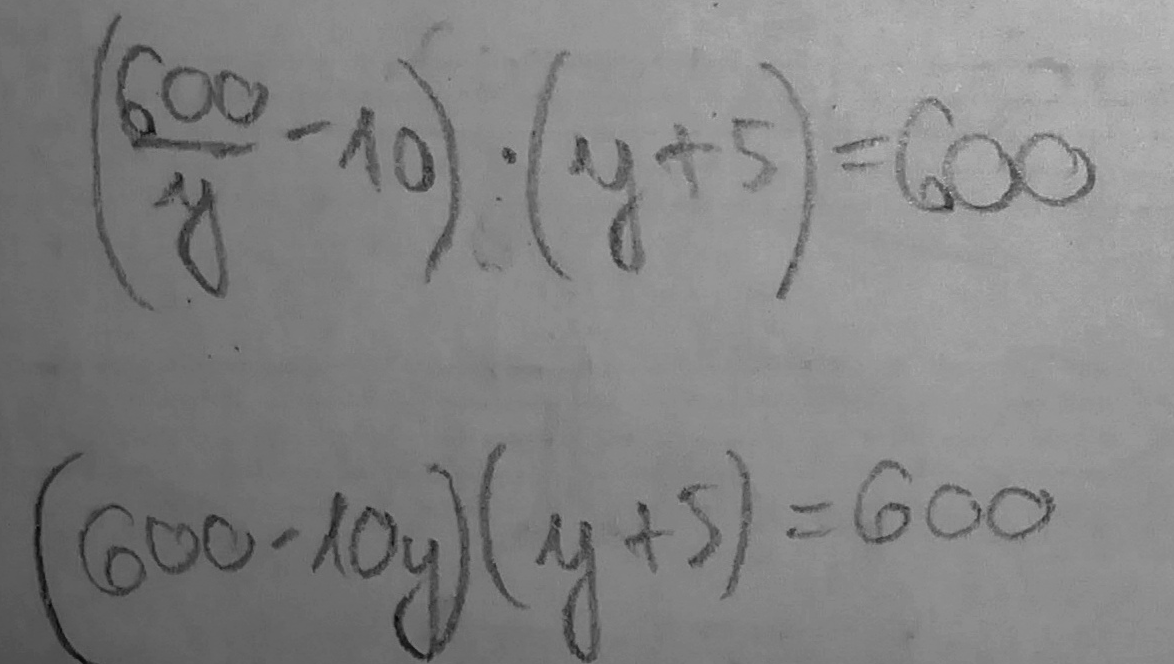 (600/y - 10) · (y + 5) = 600
(600 - 10y)(y + 5) = 600